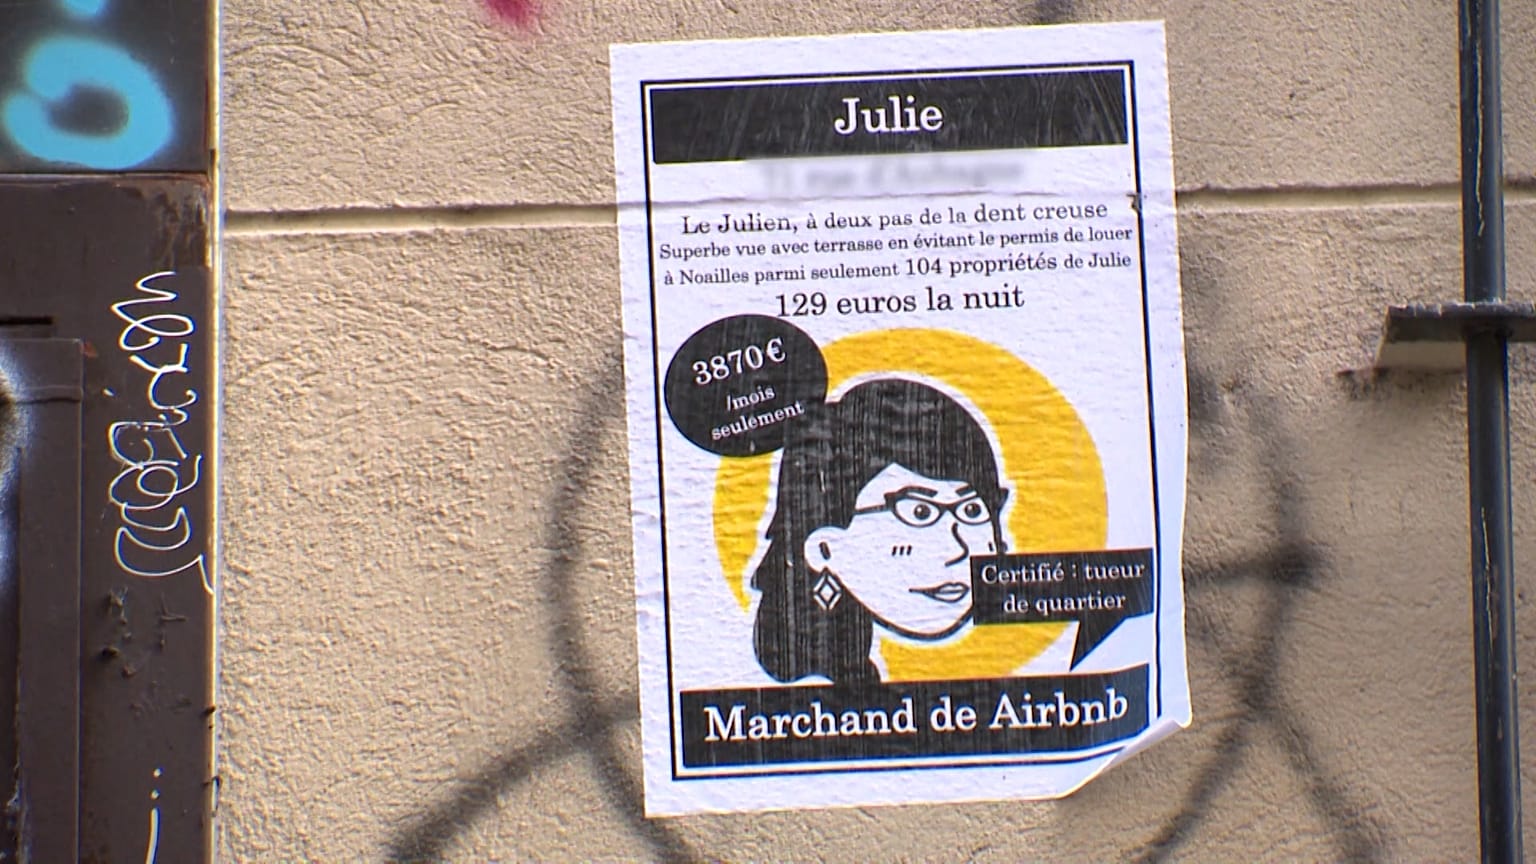 Julie
Le Julien, à deux pas de la dent creuse
Superbe vue avec terrasse en évitant le permis de louer
à Noailles parmi seulement 104 propriétés de Julie
129 euros la nuit
3870€
/mois
seulement
Certifié : tueur
de quartier
Marchand de Airbnb